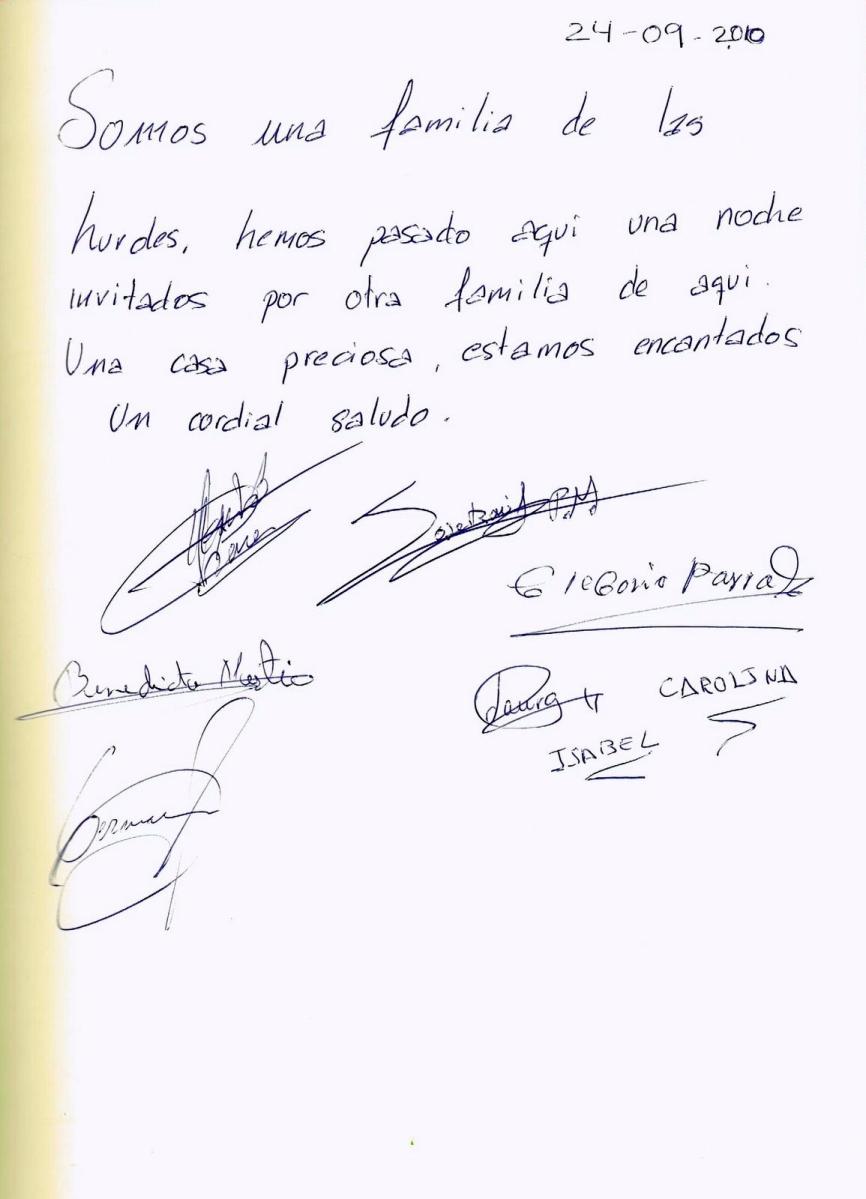 24-09-2010
Somos una familia de las
hurdes, hemos pasado aqui una noche
invitados por otra familia de aqui.
Una casa preciosa, estamos encantados
Un cordial saludo.
P.M.
Gregorio Parra
Benedicta
Laura
CAROLINA
ISABEL